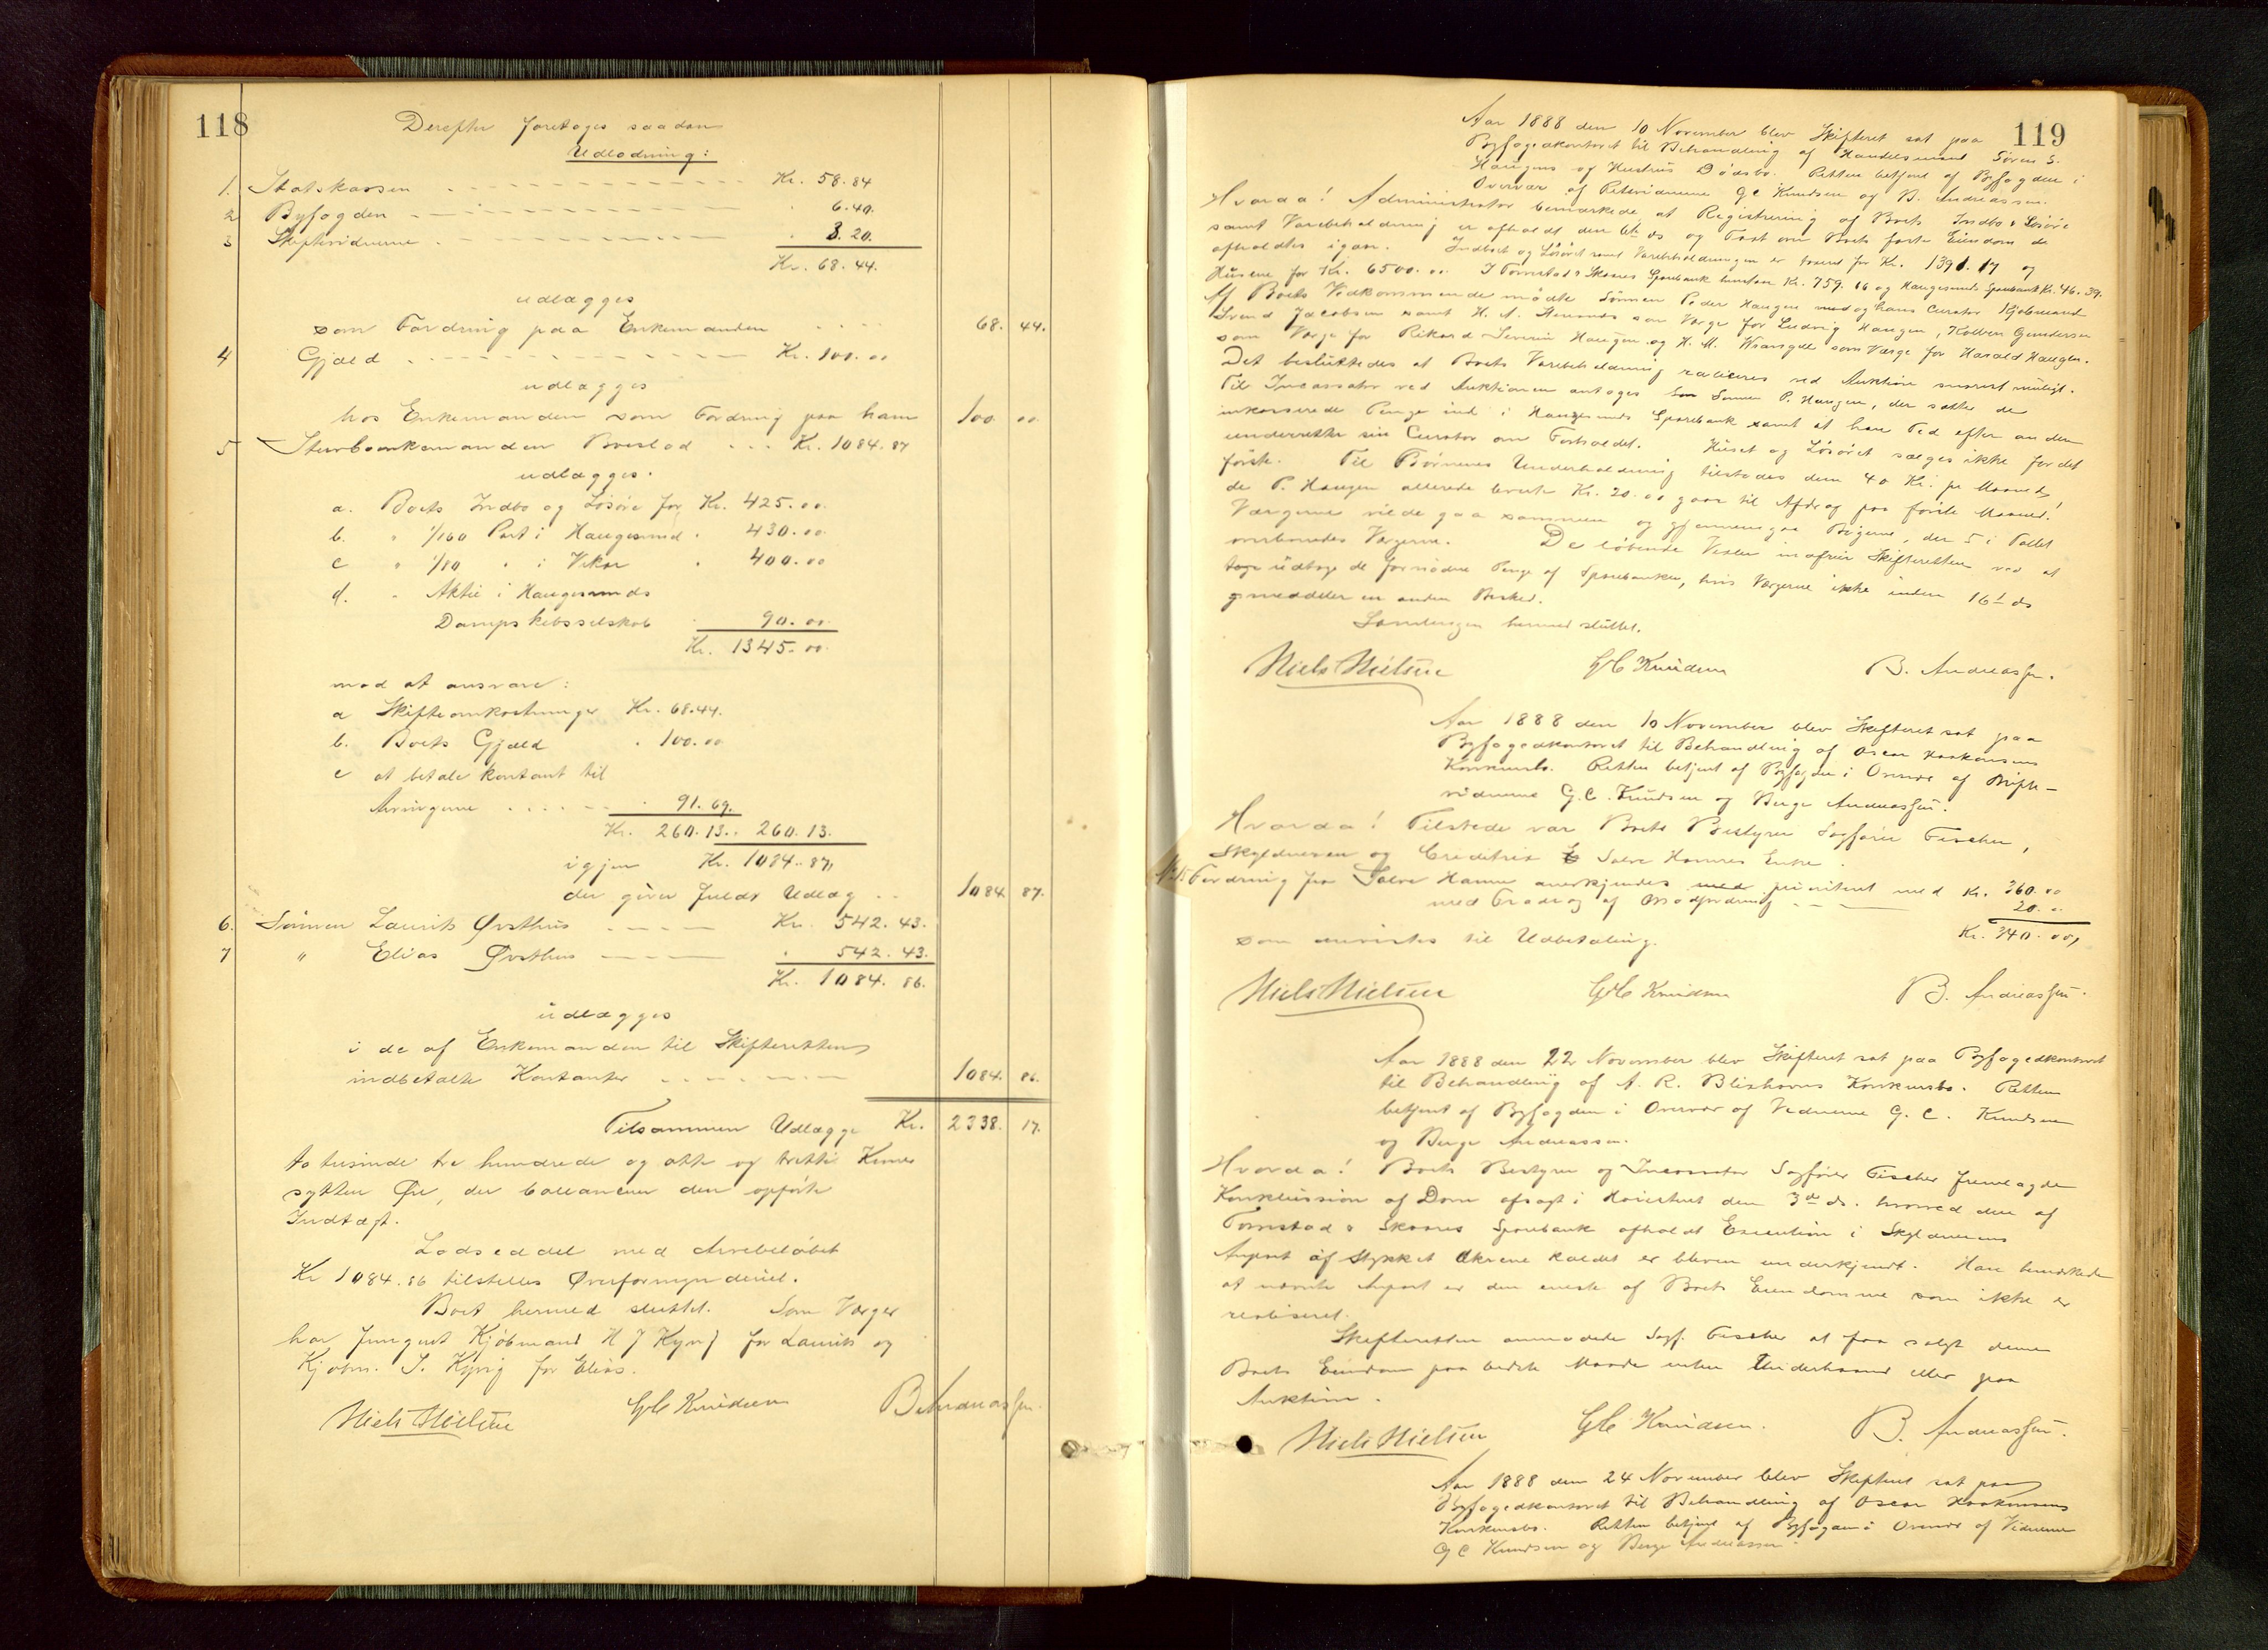 118
Derefter foretoges saadan
Udlodning:
1. Statskassen Kr. 58.84
2 Byfogden 6.40.
3 Skiftevidnerne 3.20.
Kr. 68.44.
udlægges
som Fordring paa Enkemanden 68. 44.
4 Gjæld Kr. 100.00
udlægges
hos Enkemanden som Fordring paa ham 100 00
5 Sterboenkemanden Boeslod Kr. 1084.87
udlægges.
a. Boets Indbo og Løsøre for Kr. 425.00
b. " 1/160 Part i Haugesund 430.00
c " 1/80 " i Vikar 400.00
d. " Aktie i Haugesunds
Dampskibsselskab 90.00
Kr. 1345.00
mod at ansvare:
a Skifteomkostninger Kr. 68.44.
b. Boets Gjæld 100.00
c at betale kontant til
Arvingerne 91.69.
Kr. 260.13. 260.13.
igjen Kr. 1084.87,
der giver fuldt Udlæg 1084 87.
6. Sønnen Laurits Østhus Kr. 542.43.
7 " Elias Østhus 542.43.
Kr. 1084.86.
udlægges
i de af Enkemanden til Skifteretten
indbetalte Kontanter 1084. 86.
Tilsammen Udlægge Kr. 2338. 17.
to tusinde tre hundrede og otte og tretti Kroner
sytten Øre, der ballancerer den opførte
Indtægt.
Lodseddel med Arvebeløbet
Kr 1084.86 tilstilles Overformynderiet.
Boet hermed sluttet. Som Værger
har fungeret Kjøbmand H J Kyvig for Laurits og
Kjøbm. S. Kyvig for Elias.
Niels Nielsen GC Knudsen B Andreassen.
119
Aar 1888 den 10 November blev Skifteret sat paa
Byfogedkontoret til Behandling af Handelsmand Søren S.
Haugens og Hustrus Dødsbo. Retten betjent af Byfogden i
Overvær af Retsvidnerne GC Knudsen og B. Andreassen.
Hvorda! Administrator bemærkede at Registrering af Boets Indbo & Løsøre
samt Varebeholdning er afholdt den 6te ds og Taxt over Boets faste Eiendom de
afholdtes igaar. Indboet og Løsøret samt Varebeholdningen er taxeret for Kr. 1391.17 og
Husene for Kr. 6500.00. I Tornstad & Skaares Sparebank Kr. 759.16 og Haugesunds Sparebank Kr. 46.39.
Af Boets Vedkommende mødte Sønnen Peder Haugen med og hans Curator Kjøbmand
Svend Jacobsen samt H. A. som Værge for Ludvig Haugen, Kolben Gundersen
som Værge for Rikard Severin Haugen og H. M. Wrangell som Værge for Harald Haugen.
Det besluttedes at Boets Varebeholdning realiceres ved Auktion snarest muligt.
Til Incassator ved Auktionen antoges Sønnen P. Haugen, der sætter de
inkasserede Penge ind i Haugesunds Sparebank samt at han Tid efter anden
underretter sin Curator om Forholdet. Huset og Løsøret sælges ikke for det
første. Til Børnenes Underholdning tilstodes dem 40 Kr. pr Maaned,
de P. Haugen allerede leverte Kr. 20.00 gaar til Afdrag paa første Maaned!
Værgerne vilde gaa sammen og gjennemgaa Bøgerne, der 5 i Tallet
overleveredes Værgerne. De løbende Vexler indfrier Skifteretten ved at
udtage de fornødne Penge af Sparebanken, hvis Værgerne ikke inden 16de ds
meddeler en anden Besked.
Samlingen hermed sluttet.
Niels Nielsen GC Knudsen B. Andreassen.
Aar 1888 den 10 November blev Skifteret sat paa
Byfogedkontoret til Behandling af Oscar Haakonsens
Konkursbo. Retten betjent af Byfogden i Overvær af Skifte-
vidnerne G. C. Knudsen og Berge Andreassen.
Hvorda! Tilstede var Boets Bestyrer Sagfører Fischer,
Skyldneren og Creditrix Salve Hannes Enke.
No 15 Fordring fra Salve Hanne anerkjendes med prioritet med Kr. 360.00
med Fradrag af Modfordring 20.00
som anvistes til Udbetaling. Kr. 340.00,
Niels Nielsen GC Knudsen B. Andreassen.
Aar 1888 den 22 November blev Skifteret sat paa Byfogedkontoret
til Behandling af A. R. Blixhavns Konkursbo. Retten
betjent af Byfogden i Overvær af Vidnerne G. C. Knudsen
og Berge Andreassen.
Hvorda! Boets Bestyrer og Incassator Sagfører Fischer fremlagde
Konklusion af Dom afsagt i Høiesteret den 3die ds. hvorved den af
Tornstad & Skaares Sparebank afholdt Execution i Skyldnerens
Anpart af Stykket Akrene kaldet er bleven underkjendt. Han bemærkede
at nævnte Anpart er den eneste af Boets Eiendomme som ikke er
realiseret.
Skifteretten anmodede Sagf. Fischer at faa solgt denne
Boets Eiendom paa bedste Maade enten Underhaand eller paa
Auktion.
Niels Nielsen GC Knudsen. B. Andreassen.
Aar 1888 den 24 November blev Skifteret sat paa
Byfogedkontoret til Behandling af Oscar Haakonsens
Konkursbo. Retten betjent af Byfogden i Overvær af Vidnerne
G C Knudsen og Berge Andreassen.